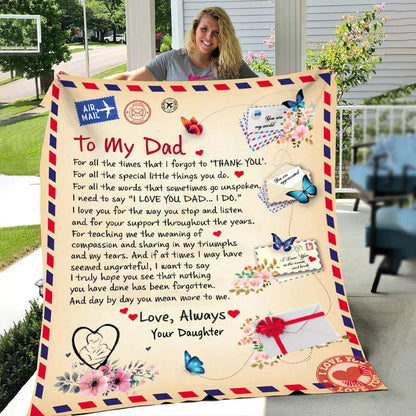 AIR MAIL
To My Dad
For all the times that I forgot to "THANK YOU".
For all the special little things you do.
For all the words that sometimes go unspoken,
I need to say "I LOVE YOU DAD... I DO."
I love you for the way you stop and listen
and for your support throughout the years.
For teaching me the meaning of
compassion and sharing in my triumphs
and my tears. And if at times I may have
seemed ungrateful, I want to say
I truly hope you see that nothing
you have done has been forgotten.
And day by day you mean more to me.
Love, Always
Your Daughter
You are
my world
You are
appreciated
I Love You
to the moon
and back
I LOVE YOU
LOVE